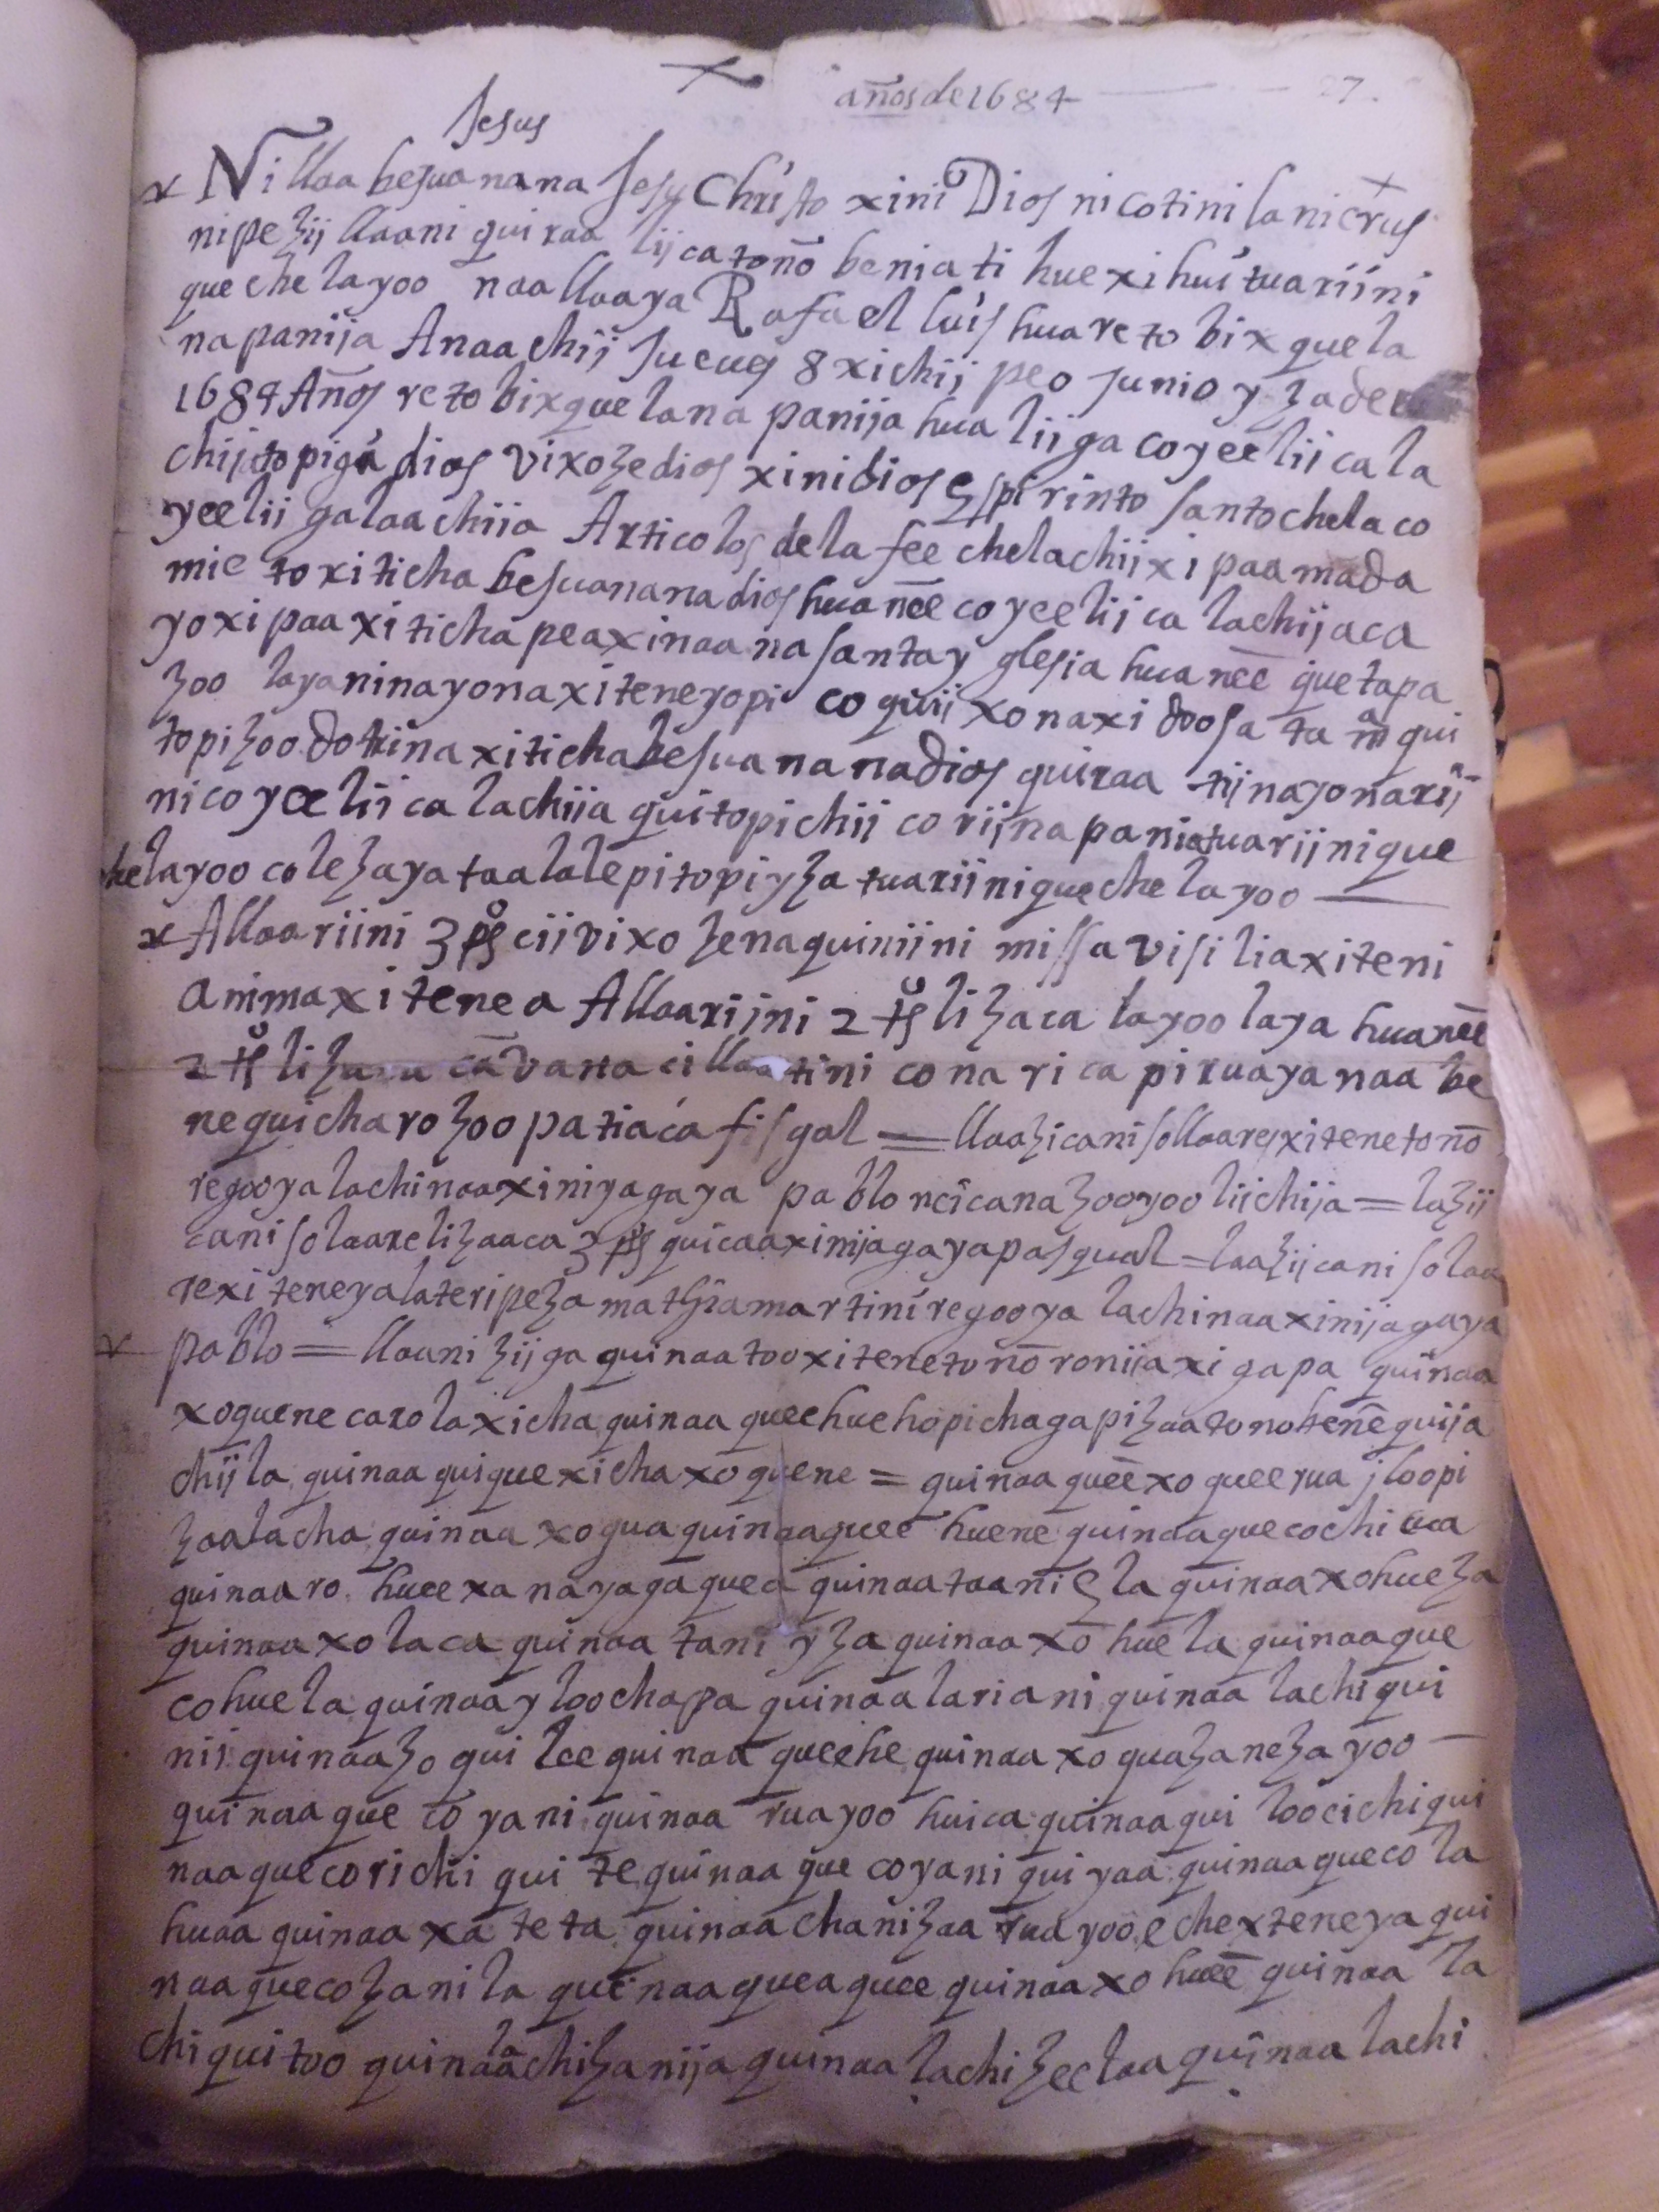 años de 1684 27.
Jesus
Ni llaa besuanana Jesu Christo xini Dios nicotini lani crus
nipezij llaani quiraa lijcatono beniati huexihuituariini
quechelayoo naa llaaya Rafael luis huaretobixquela
napanija Anaachij Jueues 8 xichij peo Junio yza de
1684 Años retobixquelana panija hualiiga coyeeliicala
chijatopiga dios vixoze dios xinidios espirinto santo chelaco
yeelii galaachiia Articolos de la fee chelachiixi paamada
mie toxiticha besuanana dios huanee coyeelijca lachijaca
yoxipaaxiticha peaxinaana santa yglesia huanee quetapa
zoo layaninayonaxiteneyopi coquij xonaxi doosa ta m qui
topizoo dotrinaxiticha besuanana dios quiraa tijnayonarij
nicoyeeliica lachiia quitopichii corijnapaniatuariinique
helayoo colezaya taalalepitopi yza tuariiniquechelayoo
Allaariini 3 ps cii vixozena quiniini missa visilia xiteni
anima xitenea Allaarijni 2 ts lizaca layoo laya huanee
2 ts cillaatini conarica piruaya naa be
nequicharozoo patiaca fisgal = llaazicani sollaarexitenetono
regooya lachinaa xiniyagaya pablo nicanazooyoo liichija = lazij
cani solaare lizaaca 3 ps quicaaxinijagaya pasqual = laazijcani solaa
rexiteneya lateripeza mathia martin regooya lachinaa xinijagaya
pablo = llaanizijga quinaa tooxitenetono ronijaxigapa quinaa
xoquene carolaxicha quinaa queehuehopichagapizaatonotene quija
chijla quinaa quiquexicha xoquene = quinaa quee xo queerua jloopi
zaalacha quinaa xogua quinaaquee huene quinaaquecochi
quinaa ro hueexanayagaquea quinaataaniela quinaaxohueza
quinaaxolaca quinaa tani yza quinaa xo huela quinaaque
cohuela quinaayloochapa quinaalariani quinaa lachiqui
nij quinaazo quilee quinaa queehe quinaa xo guazanezayoo
quinaa que coyani quinaa ruayoo huica quinaaqui loocichiqui
naaquecorichi quite quinaa que coyani quiyaa quinaaquecola
huaa quinaa xa teta quinaa chanizaa ruayoo echexteneya qui
naaquecozanila quinaa queaquee quinaaxohuee quinaa la
chiquitoo quinaalachizanija quinaa lachizeelaa quinaa lachi